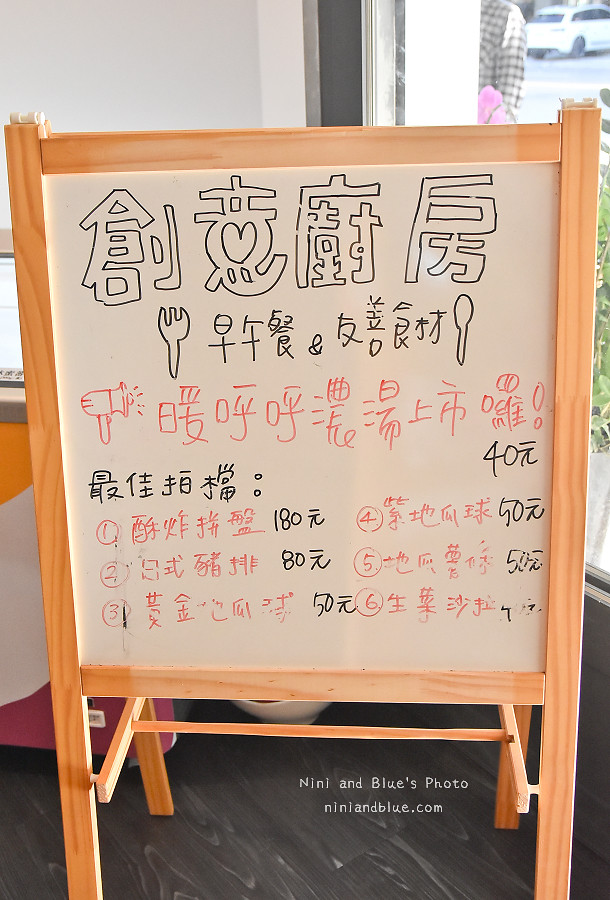 創意廚房
早午餐 & 友善食材
暖呼呼濃湯上市囉!
40元
最佳拍檔:
① 酥炸拼盤 180元
② 日式豬排 80元
③ 黃金地瓜球 50元
④ 紫地瓜球 50元
⑤ 地瓜薯條 50元
⑥ 生菜沙拉
Nini and Blue's Photo
niniandblue.com